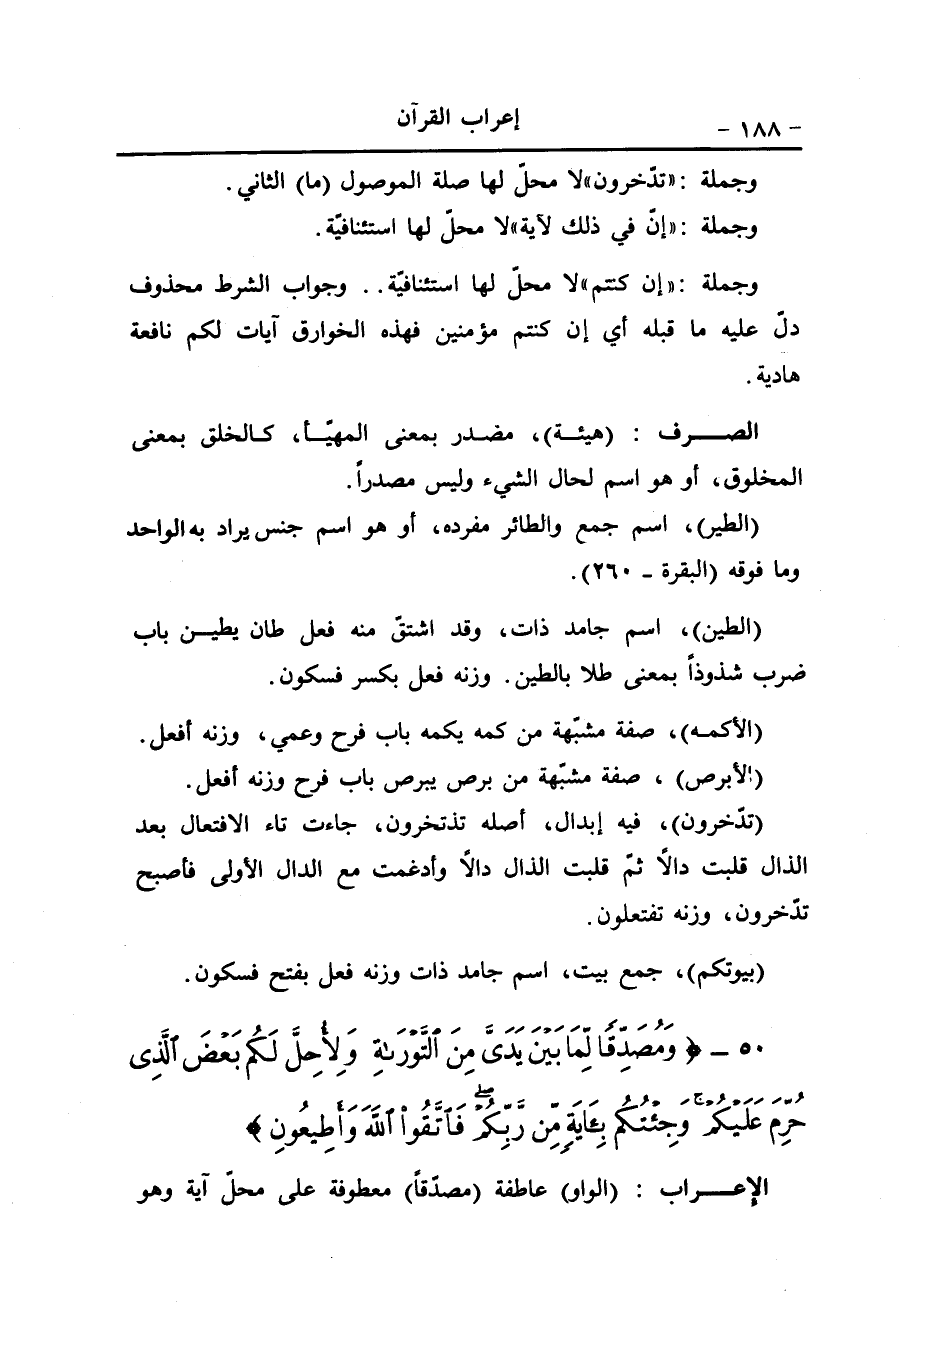 - ١٨٨ -
إعراب القرآن
وجملة : «تدّخرون» لا محلّ لها صلة الموصول (ما) الثاني .
وجملة : «إنّ في ذلك لآية» لا محلّ لها استئنافيّة .
وجملة : «إن كنتم» لا محلّ لها استئنافيّة . . وجواب الشرط محذوف
دلّ عليه ما قبله أي إن كنتم مؤمنين فهذه الخوارق آيات لكم نافعة
هادية .
الصـــرف : (هيئـة)، مصـدر بمعنى المهيّـأ، كـالخلق بمعنى
المخلوق، أو هو اسم لحال الشيء وليس مصدراً .
(الطير)، اسم جمع والطائر مفرده، أو هو اسم جنس يراد به الواحد
وما فوقه (البقرة ـ ٢٦٠) .
(الطين)، اسم جامد ذات، وقد اشتقّ منه فعل طان يطيـن باب
ضرب شذوذاً بمعنى طلا بالطين . وزنه فعل بكسر فسكون .
(الأكمـه)، صفة مشبّهة من كمه يكمه باب فرح وعمي، وزنه أفعل .
(الأبرص) ، صفة مشبّهة من برص يبرص باب فرح وزنه أفعل .
(تدّخرون)، فيه إبدال، أصله تذتخرون، جاءت تاء الافتعال بعد
الذال قلبت دالاً ثمّ قلبت الذال دالاً وأدغمت مع الدال الأولى فأصبح
تدّخرون، وزنه تفتعلون .
(بيوتكم)، جمع بيت، اسم جامد ذات وزنه فعل بفتح فسكون .
٥٠ ـ ﴿ وَمُصَدِّقًا لِّمَا بَيْنَ يَدَىَّ مِنَ ٱلتَّوْرَىٰةِ وَلِأُحِلَّ لَكُم بَعْضَ ٱلَّذِى
حُرِّمَ عَلَيْكُمْ ۚ وَجِئْتُكُم بِـَٔايَةٍ مِّن رَّبِّكُمْ ۖ فَٱتَّقُوا۟ ٱللَّهَ وَأَطِيعُونِ ﴾
الإعــراب : (الواو) عاطفة (مصدّقاً) معطوفة على محلّ آية وهو